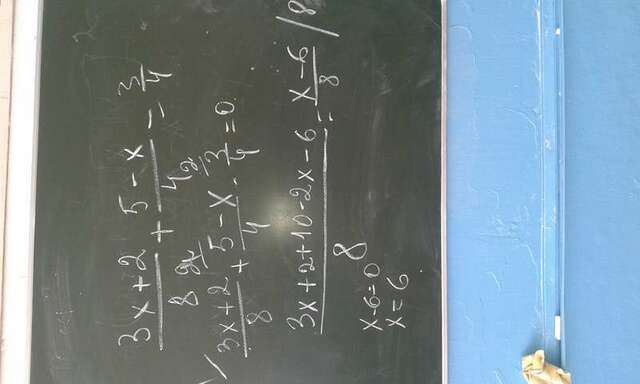 (3x+2)/8 + (5-x)/4 = 3/4
(3x+2)/8 + (5-x)/4 - 3/4 = 0
(3x+2+10-2x-6)/8 = (x-6)/8 /8
x-6=0
x=6